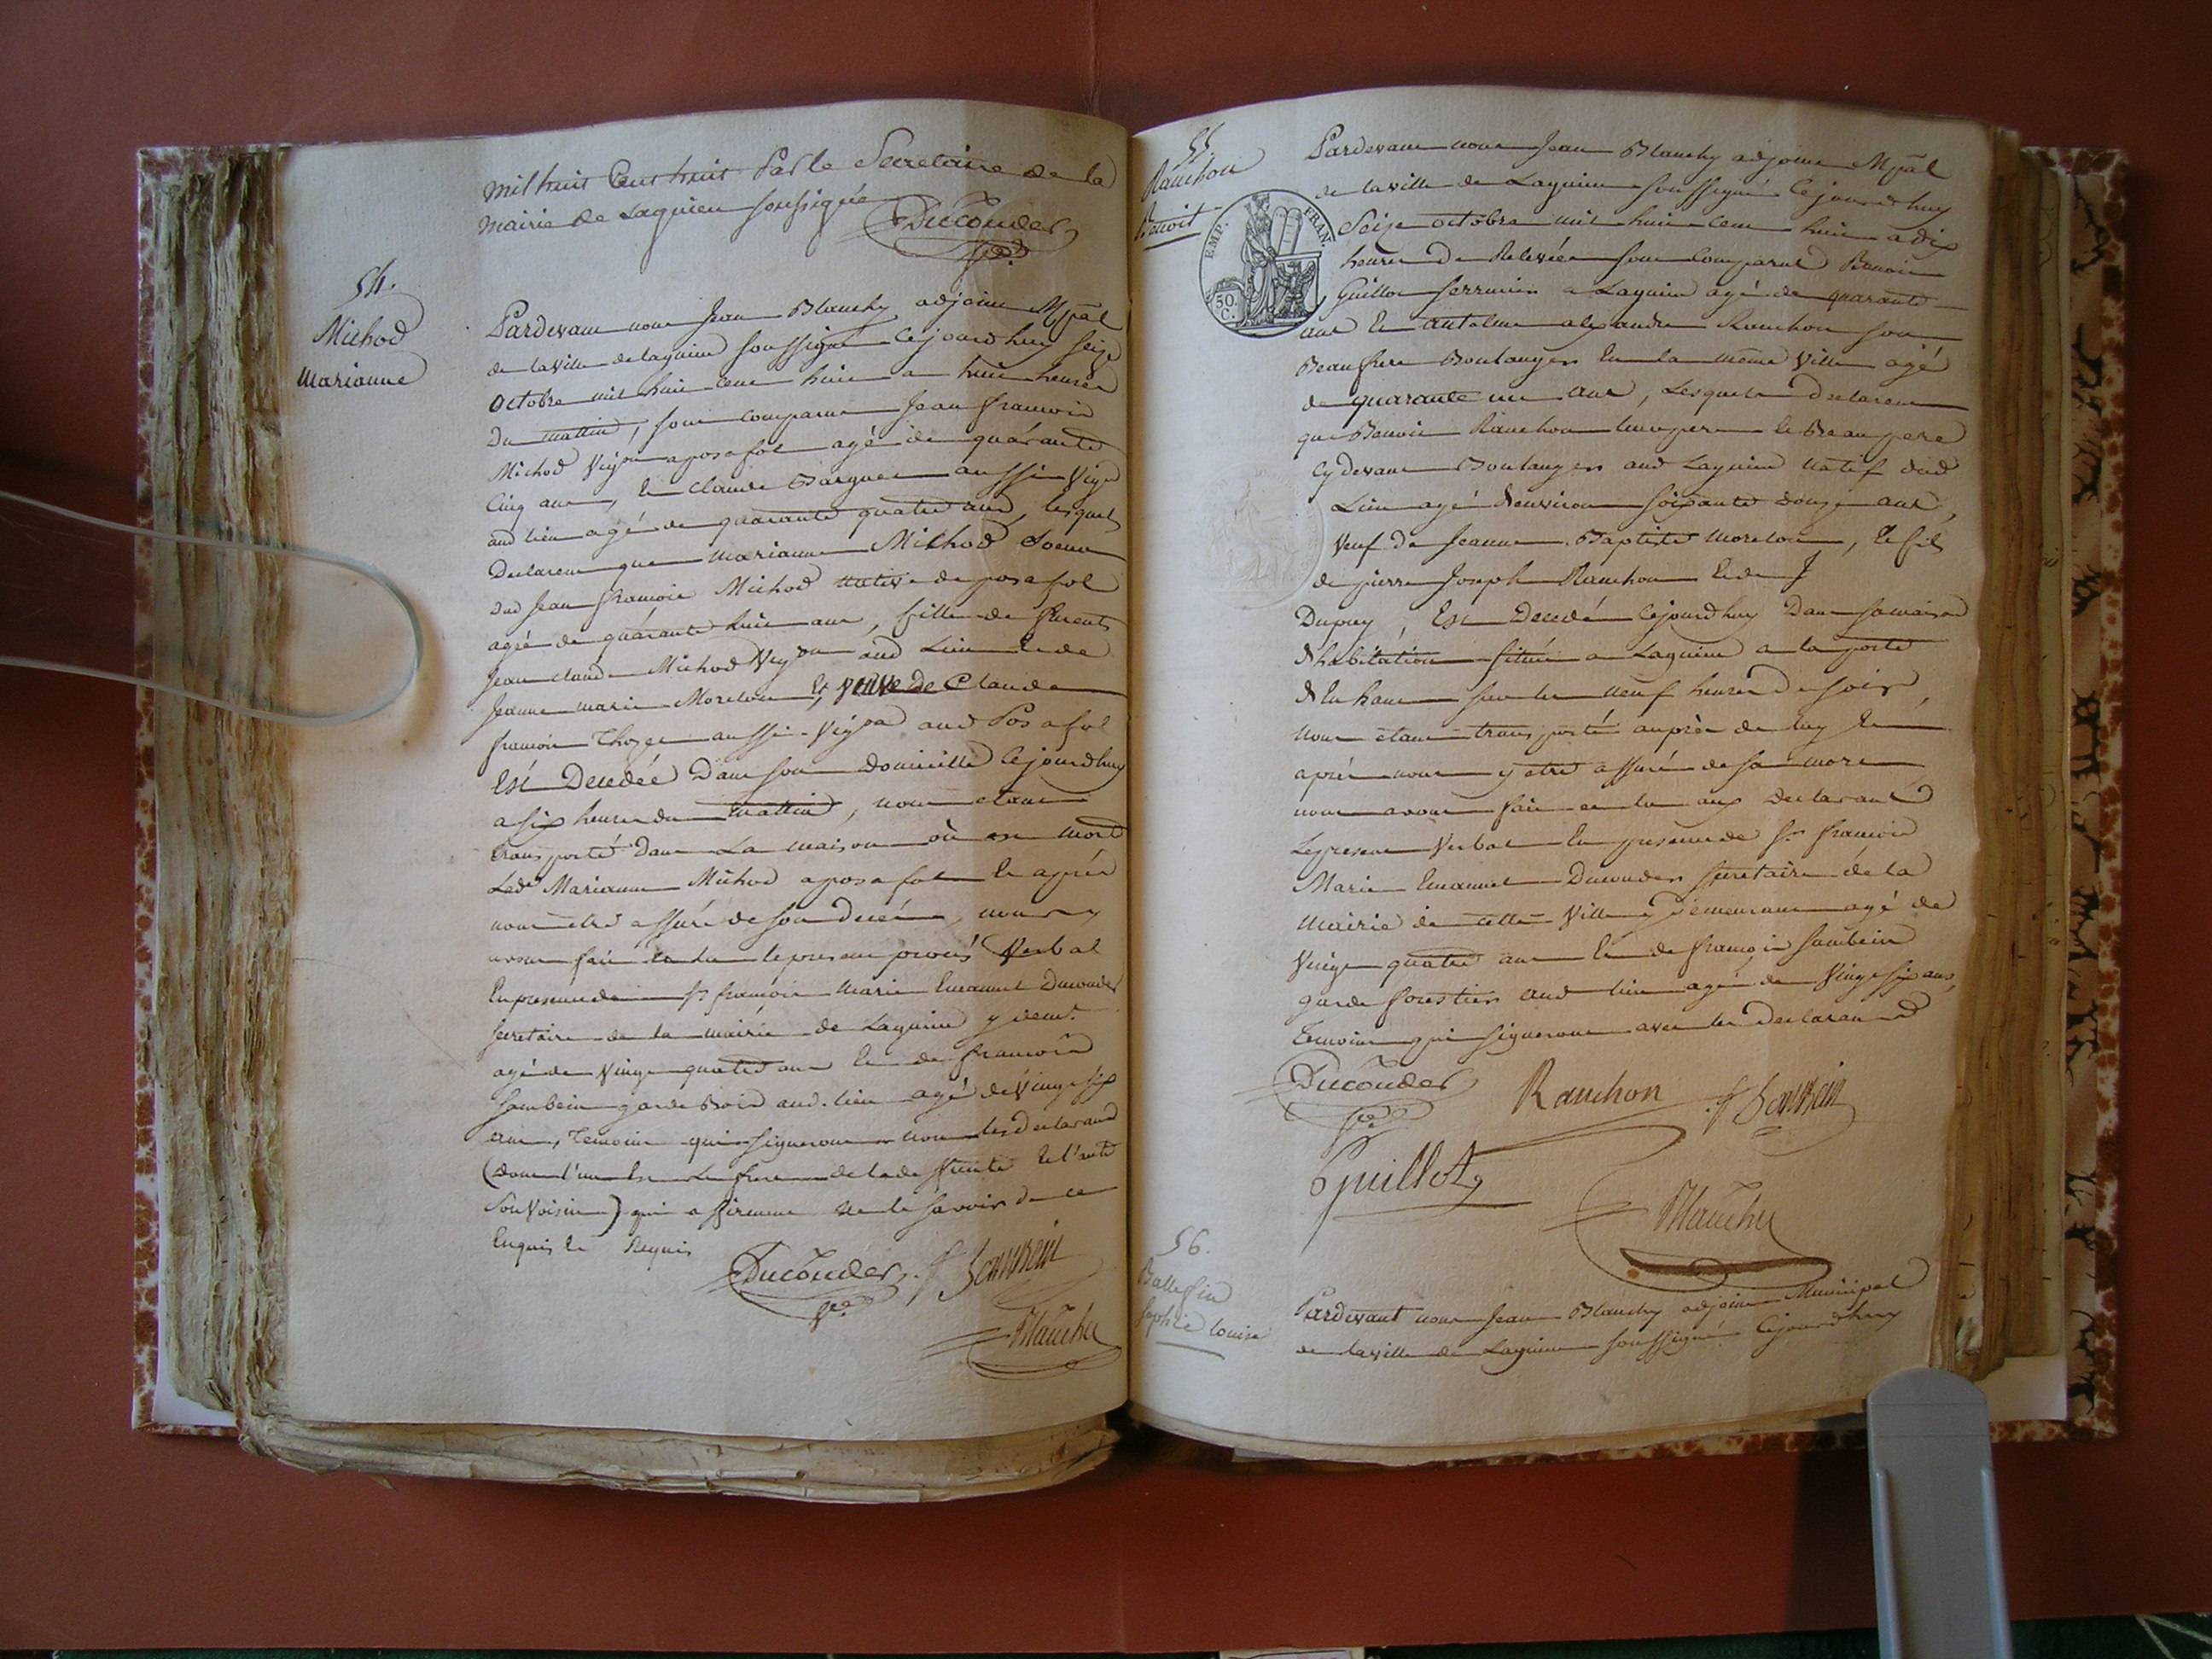 mil huit Cent huit Par le Secretaire de la
mairie de Lagnieu soussignée
Ducouder
Sre.
54.
Michod
Marianne
Pardevant nous Jean Blanchy adjoint Mpal
de la ville de Lagnieu soussigné Cejourdhuy seize
octobre mil huit cent huit a huit heures
Du mattin, sont comparus Jean françois
Michod Vigon a posafol agé de quarante
Cinq ans, Et Claude Barguet aussi Vigon
aud lieu agé de quarante quatre ans, lesquels
Declarent que Marianne Michod Soeur
dud Jean françois Michod native de posafol
agée de quarante huit ans, fille de funts
Jean claude Michod Vigon aud Lieu et de
Jeanne marie Morelon, Et veuve De Claude
françois aussi Vigon aud Posafol
Est Decedée Dans son domicille Cejourdhuy
a six heures du mattin, nous etant
transporté Dans La maison où est morte
Lade Marianne Michod a posafol Et après
nous etre assuré de son Decés, nous y
avons fait et lu le present procès Verbal
En presence de Sr françois Marie Emanuel Ducouder
secretaire de la mairie de Lagnieu y demt
agé de Vingt quatre ans Et de françois
Sambein garde Bois aud. lieu agé de Vingt six
ans, Temoins qui signeront non les Declarans
(dont l'un Est Le frere de lade funte Et l'autre
son Voisin) qui affirment ne le savoir de ce
Enquis Et Requis
Ducouder f Sambein
Sre
Blanchy
55.
Rauchon
Benoit
EMP. FRAN.
50.
C.
Pardevant nous Jean Blanchy adjoint Mpal
de la ville de Lagnieu soussigné Cejourdhuy
Seize octobre mil huit cent huit a dix
heures De Relevée sont Comparus Benoit
Guillot serrurier a Lagnieu agé de quarante
ans Et antelme alexandre Rauchon son
Beaufrere Boulanger En la même Ville agé
de quarante un ans, Lesquels Declarent
que Benoit Rauchon leur pere Et Beaupere
Cydevant Boulanger aud Lagnieu natif dud
Lieu agé d'environ soixante douze ans,
Veuf De Jeanne Baptiste Morelon, Et fils
de pierre Joseph Rauchon Et de J
Dupuy, Est Decedé Cejourdhuy Dans sa maison
d'habitation située a Lagnieu a la porte
d'En haut sur les neuf heures De soir,
Nous etant transporté auprès de luy Et
après nous y etre assuré de sa mort
nous avons fait et lu aux declarans
Le present Verbal En presence de Sr françois
Marie Emanuel Ducouder secretaire de la
mairie de cette Ville y Demeurant agé de
Vingt quatre ans Et de françois Sambein
garde forestier aud lieu agé de Vingt six ans,
Temoins qui signeront avec les Declarans
Ducouder Rauchon f Sambein
Sre
Guillot
Blanchy
56.
Sophie Louise
Pardevant nous Jean Blanchy adjoint Municipal
de la ville de Lagnieu soussigné Cejourdhuy